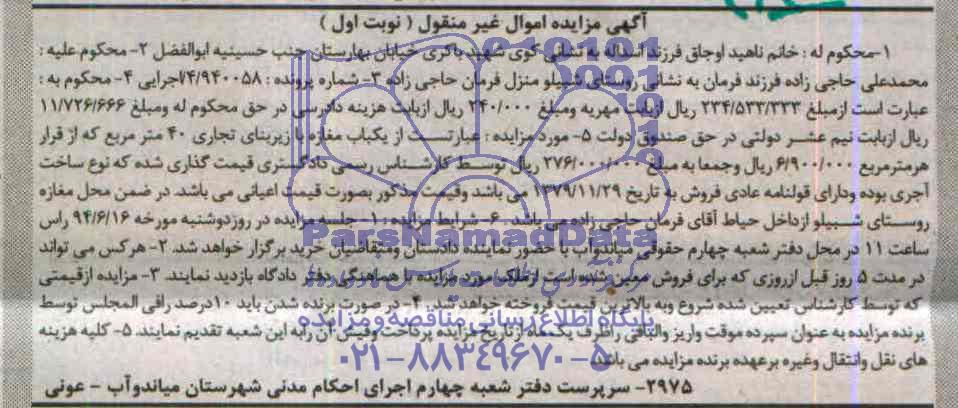 آگهی مزایده اموال غیر منقول ( نوبت اول )
۱-محکوم له : خانم ناهید اوجاق فرزند اسداله به نشانی کوی شهید باکری خیابان بهارستان جنب حسینیه ابوالفضل ۲- محکوم علیه :
محمدعلی حاجی زاده فرزند فرمان به نشانی روستای شبیلو منزل فرمان حاجی زاده ۳- شماره پرونده : ۴/۹۴۰۰۵۸اجرایی ۴- محکوم به :
عبارت است ازمبلغ ۲۳۴/۵۳۳/۳۳۳ ریال ازبابت مهریه ومبلغ ۲۴۰/۰۰۰ ریال ازبابت هزینه دادرسی در حق محکوم له ومبلغ ۱۱/۷۲۶/۶۶۶
ریال ازبابت نیم عشر دولتی در حق صندوق دولت ۵- مورد مزایده : عبارتست از یکباب مغازه با زیربنای تجاری ۴۰ متر مربع که از قرار
هرمترمربع ۶/۹۰۰/۰۰۰ ریال وجمعا به مبلغ ۲۷۶/۰۰۰/۰۰۰ ریال توسط کارشناس رسمی دادگستری قیمت گذاری شده که نوع ساخت
آجری بوده ودارای قولنامه عادی فروش به تاریخ ۱۳۷۹/۱۱/۲۹ می باشد وقیمت مذکور بصورت قیمت اعیانی می باشد. در ضمن محل مغازه
روستای شبیلو ازداخل حیاط آقای فرمان حاجی زاده می باشد . ۶- شرایط مزایده : ۱-جلسه مزایده در روزدوشنبه مورخه ۹۴/۶/۱۶ راس
ساعت ۱۱ در محل دفتر شعبه چهارم حقوقی میاندوآب با حضور نماینده دادستان ومتقاضیان خرید برگزار خواهد شد. ۲- هرکس می تواند
در مدت ۵ روز قبل ازروزی که برای فروش معین شده است ازملک مورد مزایده با هماهنگی دفتر دادگاه بازدید نمایند. ۳- مزایده ازقیمتی
که توسط کارشناس تعیین شده شروع وبه بالاترین قیمت فروخته خواهد شد. ۴- در صورت برنده شدن باید ۱۰درصد رافی المجلس توسط
برنده مزایده به عنوان سپرده موقت واریز والباقی راظرف یکماه ازتاریخ مزایده پرداخت وفیش آن رابه این شعبه تقدیم نمایند. ۵- کلیه هزینه
های نقل وانتقال وغیره برعهده برنده مزایده می باشد
۲۹۷۵- سرپرست دفتر شعبه چهارم اجرای احکام مدنی شهرستان میاندوآب - عونی
ParsNamadData
پایگاه اطلاع رسانی مناقصه و مزایده
۰۲۱-۸۸۳۴۹۶۷۰-۵